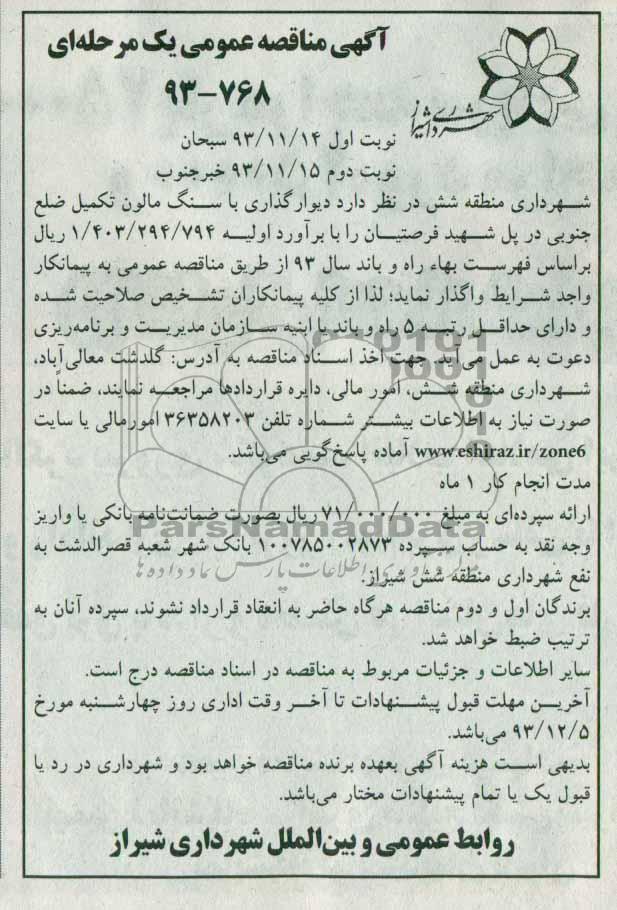 آگهی مناقصه عمومی یک مرحله‌ای
۹۳-۷۶۸
شهرداری شیراز
نوبت اول ۹۳/۱۱/۱۴ سبحان
نوبت دوم ۹۳/۱۱/۱۵ خبرجنوب
شهرداری منطقه شش در نظر دارد دیوارگذاری با سنگ مالون تکمیل ضلع
جنوبی در پل شهید فرصتیان را با برآورد اولیه ۱/۴۰۳/۲۹۴/۷۹۴ ریال
براساس فهرست بهاء راه و باند سال ۹۳ از طریق مناقصه عمومی به پیمانکار
واجد شرایط واگذار نماید؛ لذا از کلیه پیمانکاران تشخیص صلاحیت شده
و دارای حداقل رتبه ۵ راه و باند یا ابنیه سازمان مدیریت و برنامه‌ریزی
دعوت به عمل می‌آید جهت اخذ اسناد مناقصه به آدرس: گلدشت معالی‌آباد،
شهرداری منطقه شش، امور مالی، دایره قراردادها مراجعه نمایند، ضمناً در
صورت نیاز به اطلاعات بیشتر شماره تلفن ۳۶۳۵۸۲۰۳ امورمالی یا سایت
www.eshiraz.ir/zone6 آماده پاسخ‌گویی می‌باشد.
مدت انجام کار ۱ ماه
ارائه سپرده‌ای به مبلغ ۷۱/۰۰۰/۰۰۰ ریال بصورت ضمانت‌نامه بانکی یا واریز
ParsNamadData
وجه نقد به حساب سپرده ۱۰۰۷۸۵۰۰۲۸۷۳ بانک شهر شعبه قصرالدشت به
نفع شهرداری منطقه شش شیراز.
برندگان اول و دوم مناقصه هرگاه حاضر به انعقاد قرارداد نشوند، سپرده آنان به
ترتیب ضبط خواهد شد.
سایر اطلاعات و جزئیات مربوط به مناقصه در اسناد مناقصه درج است.
آخرین مهلت قبول پیشنهادات تا آخر وقت اداری روز چهارشنبه مورخ
۹۳/۱۲/۵ می‌باشد.
بدیهی است هزینه آگهی بعهده برنده مناقصه خواهد بود و شهرداری در رد یا
قبول یک یا تمام پیشنهادات مختار می‌باشد.
روابط عمومی و بین‌الملل شهرداری شیراز